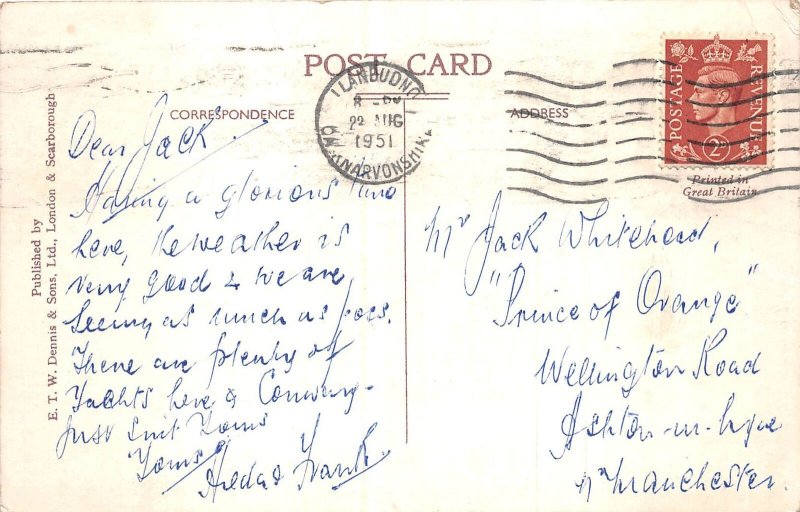 POST CARD
CORRESPONDENCE
ADDRESS
Published by
E. T. W. Dennis & Sons, Ltd., London & Scarborough
LLANDUDNO
8 - PM
22 AUG
1951
CAERNARVONSHIRE
POSTAGE
REVENUE
2D
Printed in
Great Britain
Dear Jack.
Having a glorious time
here, the weather is
very good & we are
seeing as much as poss.
There are plenty of
Yachts here & Conway-
just suit Toms
Toms
Frank.
Mr Jack Whitehead,
"Prince of Orange"
Wellington Road
Ashton-u-Lyne
Nr Manchester.